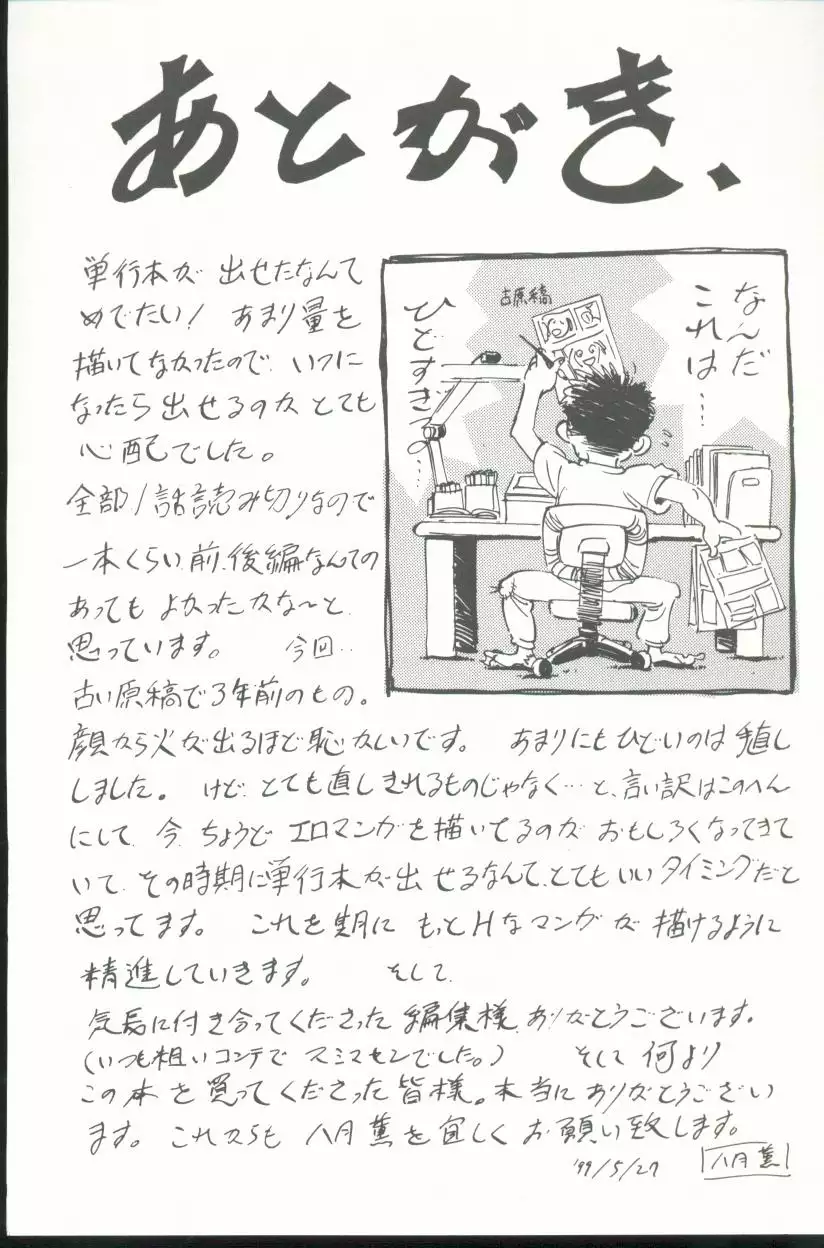 あとがき、
単行本が出せたなんて
めでたい! あまり量を
描いてなかったので、いつに
なったら出せるのかとても
心配でした。
全部1話読み切りなので
一本くらい前、後編なんての
あってもよかったかな〜と
思っています。 今回‥
古い原稿で3年前のもの。
顔から火が出るほど恥かしいです。 あまりにもひどいのは直し
しました。 けど、とても直しきれるものじゃなく…と、言い訳はこのへん
にして、今、ちょうどエロマンガを描いてるのがおもしろくなってきて
いて、その時期に単行本が出せるなんて、とてもいいタイミングだと
思ってます。 これを期にもっとHなマンガが描けるように
精進していきます。 そして、
気長に付き合ってくださった編集様、ありがとうございます。
(いつも粗いコンテでスミマセンでした。) そして何より
この本を買ってくださった皆様。本当にありがとうござい
ます。これからも八月薫を宜しくお願い致します。
'99/5/27 八月薫
なんだ
これは…
古原稿
ひどすぎっ…